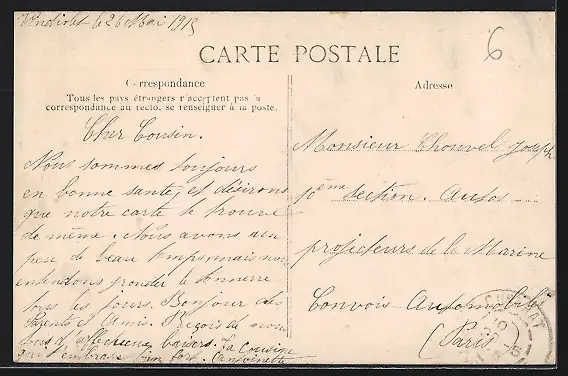 le 26 Mai 1915
6
CARTE POSTALE
Correspondance
Tous les pays étrangers n'acceptent pas la
correspondance au recto, se renseigner à la poste.
Adresse
Cher Cousin.
Nous sommes toujours
en bonne santé, et désirons
que notre carte te trouve
de même. Nous avons un
peu de beau temps mais nous
entendons gronder le tonnerre
tous les jours. Bonjour des
Parents et Amis. Reçois de nous
tous d'affectueux baisers. Ta Cousine
qui t'embrasse bien fort. Antoinette
Monsieur Chouvel Joseph
10ème Section. Autos
projecteurs de la Marine
Convois Automobiles
(Paris)